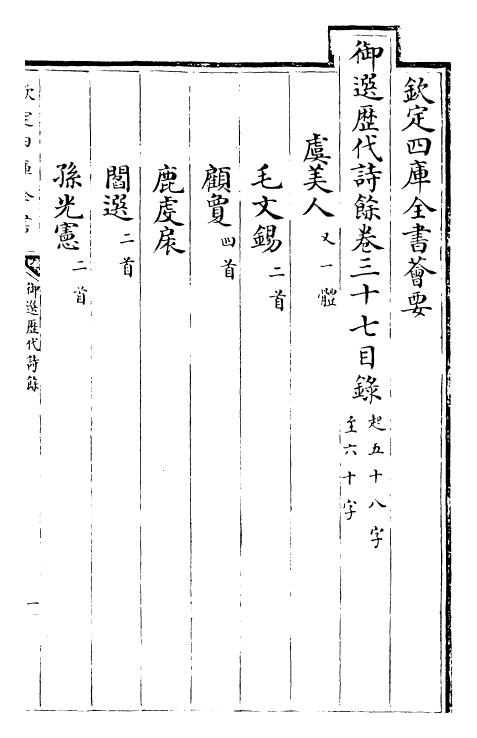 欽定四庫全書薈要
御選歷代詩餘卷三十七目錄 起五十八字
至六十字
虞美人 又一體
毛文錫 二首
顧敻 四首
鹿虔扆
閻選 二首
孫光憲 二首
欽定四庫全書
御選歷代詩餘
一